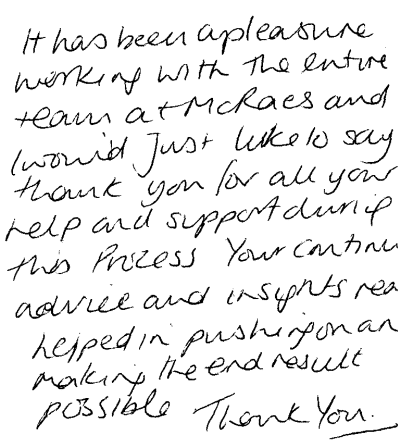 It has been a pleasure
working with the entire
team at McRaes and
I would Just like to say
thank you for all your
help and support during
this Prozess Your continu
advice and insights rea
helped in pushing on an
making the end result
possible Thank You.